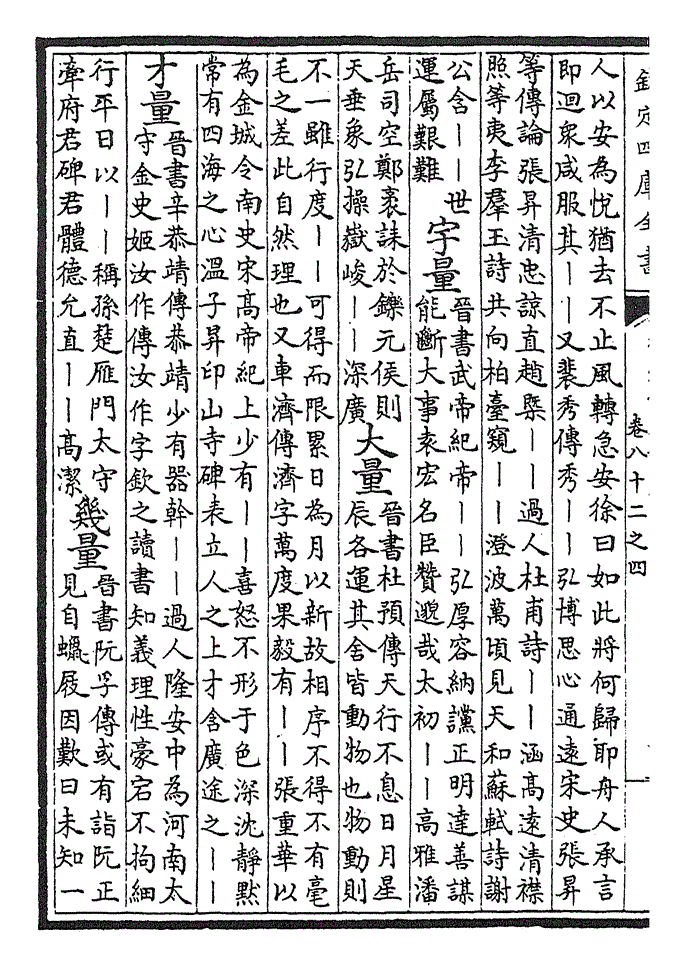 欽定四庫全書
卷八十二之四
人以安為悅猶去不止風轉急安徐曰如此將何歸耶舟人承言
即迴衆咸服其丨丨又裴秀傳秀丨丨弘博思心通遠宋史張昇
等傳論張昇清忠諒直趙槩丨丨過人杜甫詩丨丨涵高遠清襟
照等夷李羣玉詩共向柏臺窺丨丨澄波萬頃見天和蘇軾詩謝
公含丨丨世
運屬艱難
宇量
晉書武帝紀帝丨丨弘厚容納讜正明達善謀
能斷大事袁宏名臣贊邈哉太初丨丨高雅潘
岳司空鄭袤誄於鑠元侯則
天垂象弘操嶽峻丨丨深廣
大量
晉書杜預傳天行不息日月星
辰各運其舍皆動物也物動則
不一雖行度丨丨可得而限累日為月以新故相序不得不有毫
毛之差此自然理也又車濟傳濟字萬度果毅有丨丨張重華以
為金城令南史宋高帝紀上少有丨丨喜怒不形于色深沈靜默
常有四海之心溫子昇印山寺碑表立人之上才含廣途之丨丨
才量
晉書辛恭靖傳恭靖少有器幹丨丨過人隆安中為河南太
守金史姬汝作傳汝作字欽之讀書知義理性豪宕不拘細
行平日以丨丨稱孫楚雁門太守
牽府君碑君體德允直丨丨高潔
幾量
晉書阮孚傳或有詣阮正
見自蠟屐因歎曰未知一